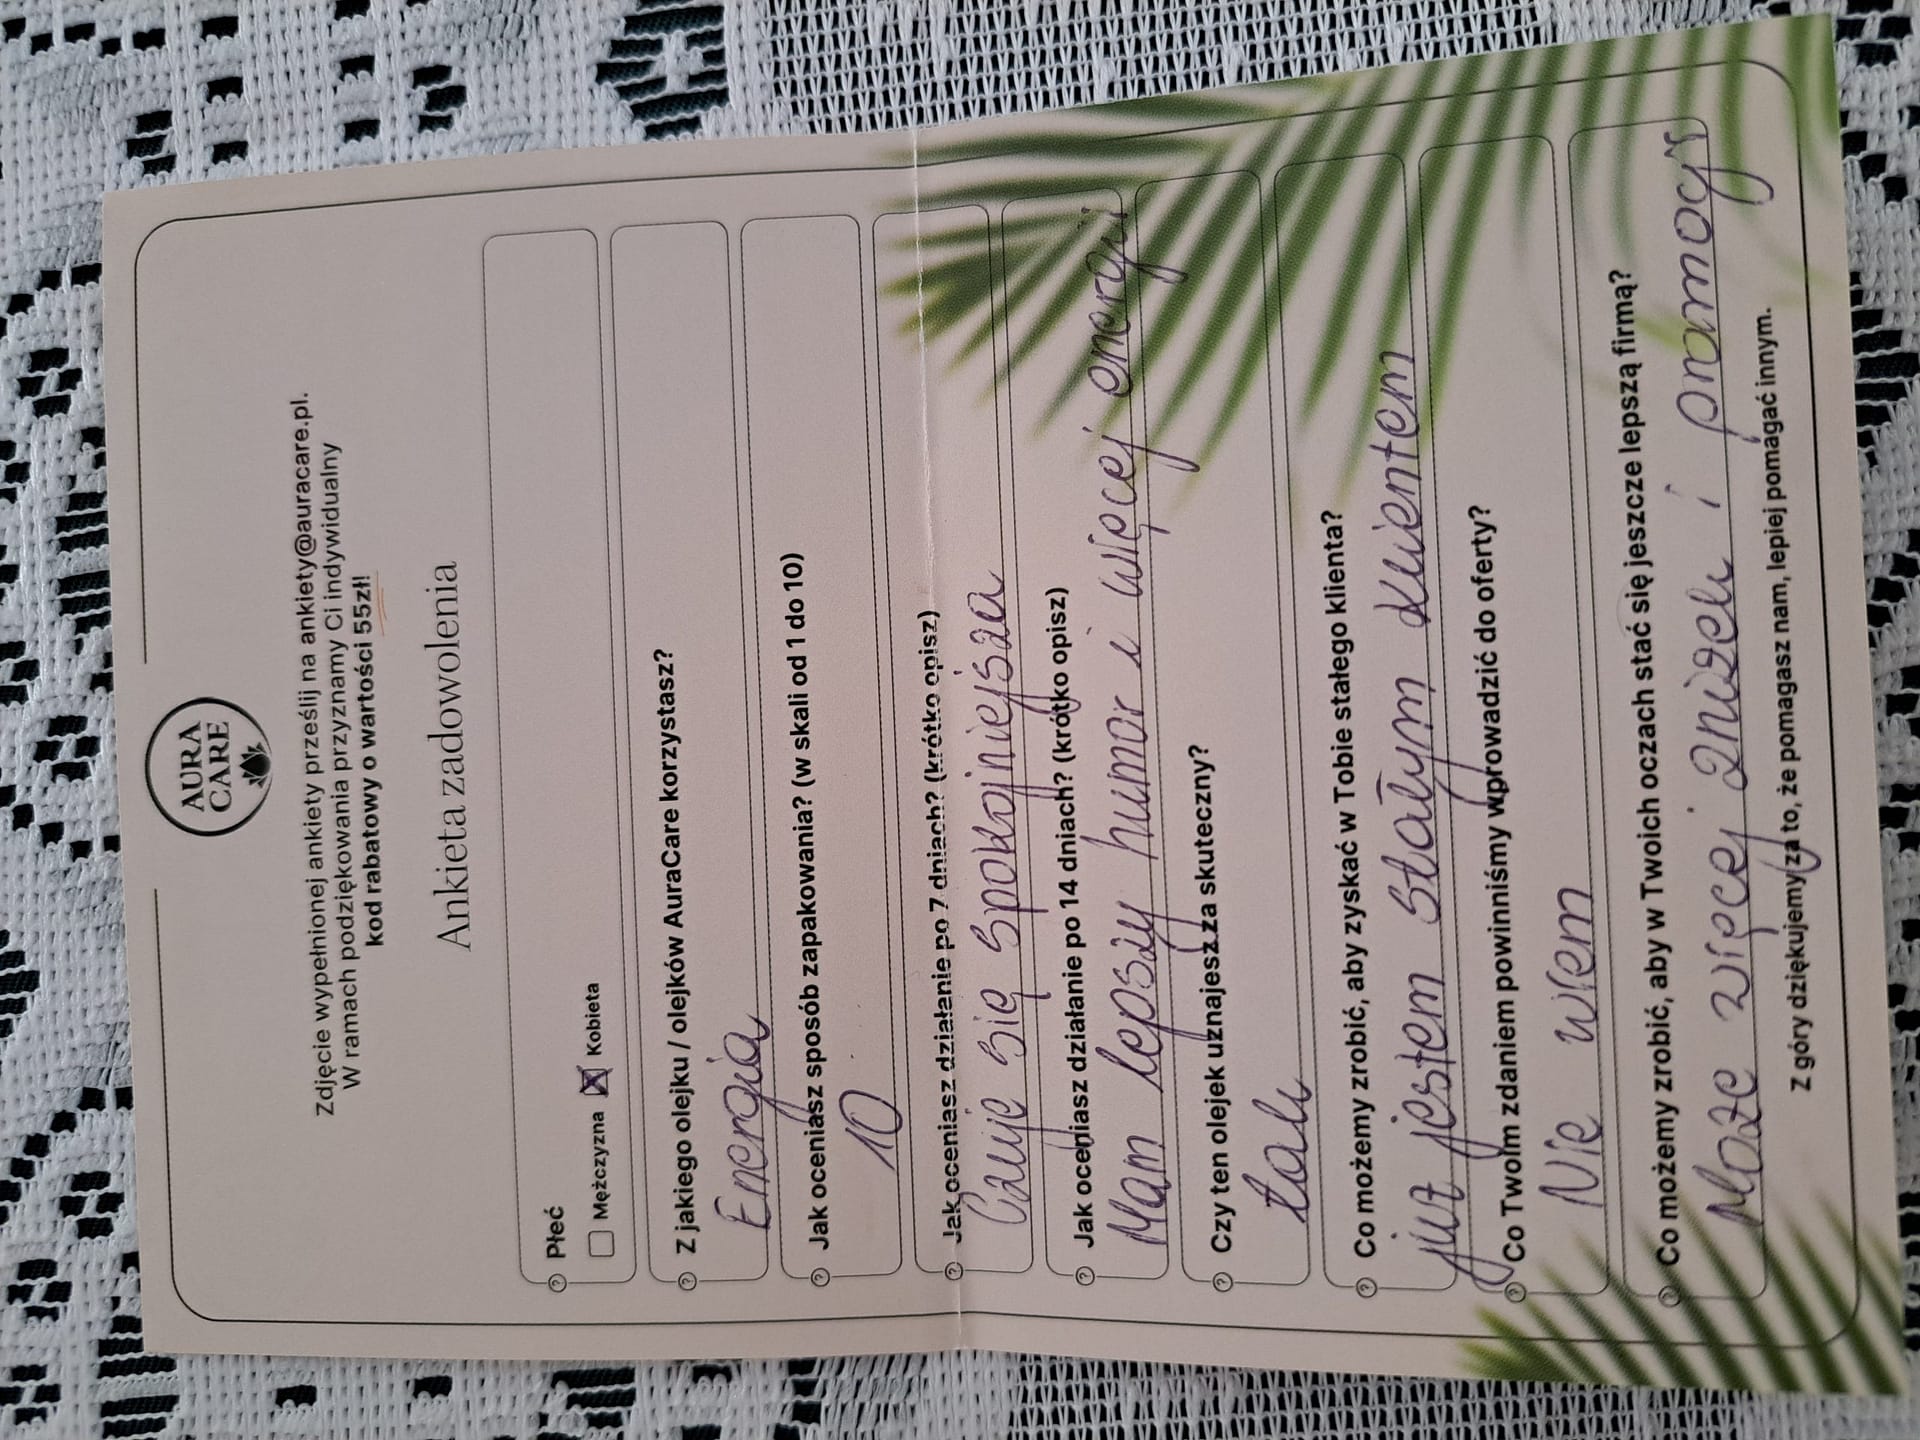 AURA
CARE
Zdjęcie wypełnionej ankiety prześlij na ankiety@auracare.pl.
W ramach podziękowania przyznamy Ci indywidualny
kod rabatowy o wartości 55zł!
Ankieta zadowolenia
Płeć
Mężczyzna Kobieta
Z jakiego olejku / olejków AuraCare korzystasz?
Energia
Jak oceniasz sposób zapakowania? (w skali od 1 do 10)
10
Jak oceniasz działanie po 7 dniach? (krótko opisz)
Czuje się spokojniejsza
Jak oceniasz działanie po 14 dniach? (krótko opisz)
Mam lepszy humor i więcej energii
Czy ten olejek uznajesz za skuteczny?
tak
Co możemy zrobić, aby zyskać w Tobie stałego klienta?
już jestem stałym klientem
Co Twoim zdaniem powinniśmy wprowadzić do oferty?
Nie wiem
Co możemy zrobić, aby w Twoich oczach stać się jeszcze lepszą firmą?
Może więcej zniżek i promocji
Z góry dziękujemy za to, że pomagasz nam, lepiej pomagać innym.